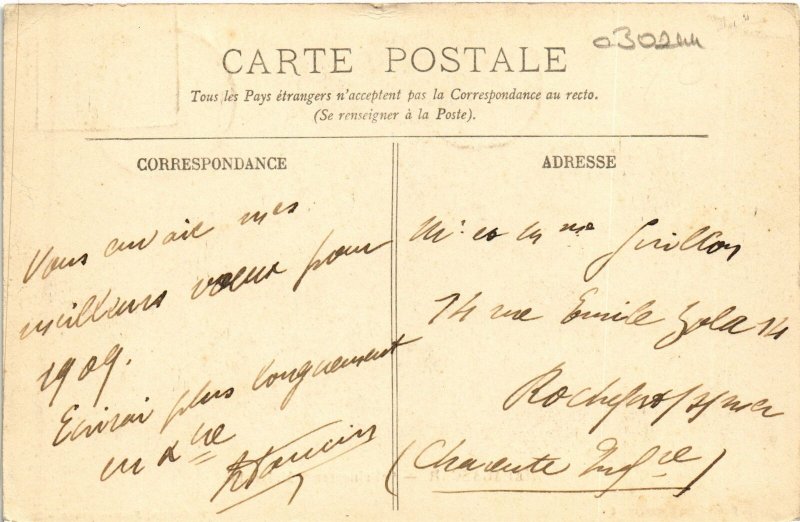 030244
CARTE POSTALE
Tous les Pays étrangers n'acceptent pas la Correspondance au recto.
(Se renseigner à la Poste).
CORRESPONDANCE
Vous envoie mes
meilleurs voeux pour
1909.
Ecrirai plus longuement
ADRESSE
Mr et Mme Guillon
14 rue Emile Zola 14
Rochefort s/mer
(Charente Infre)